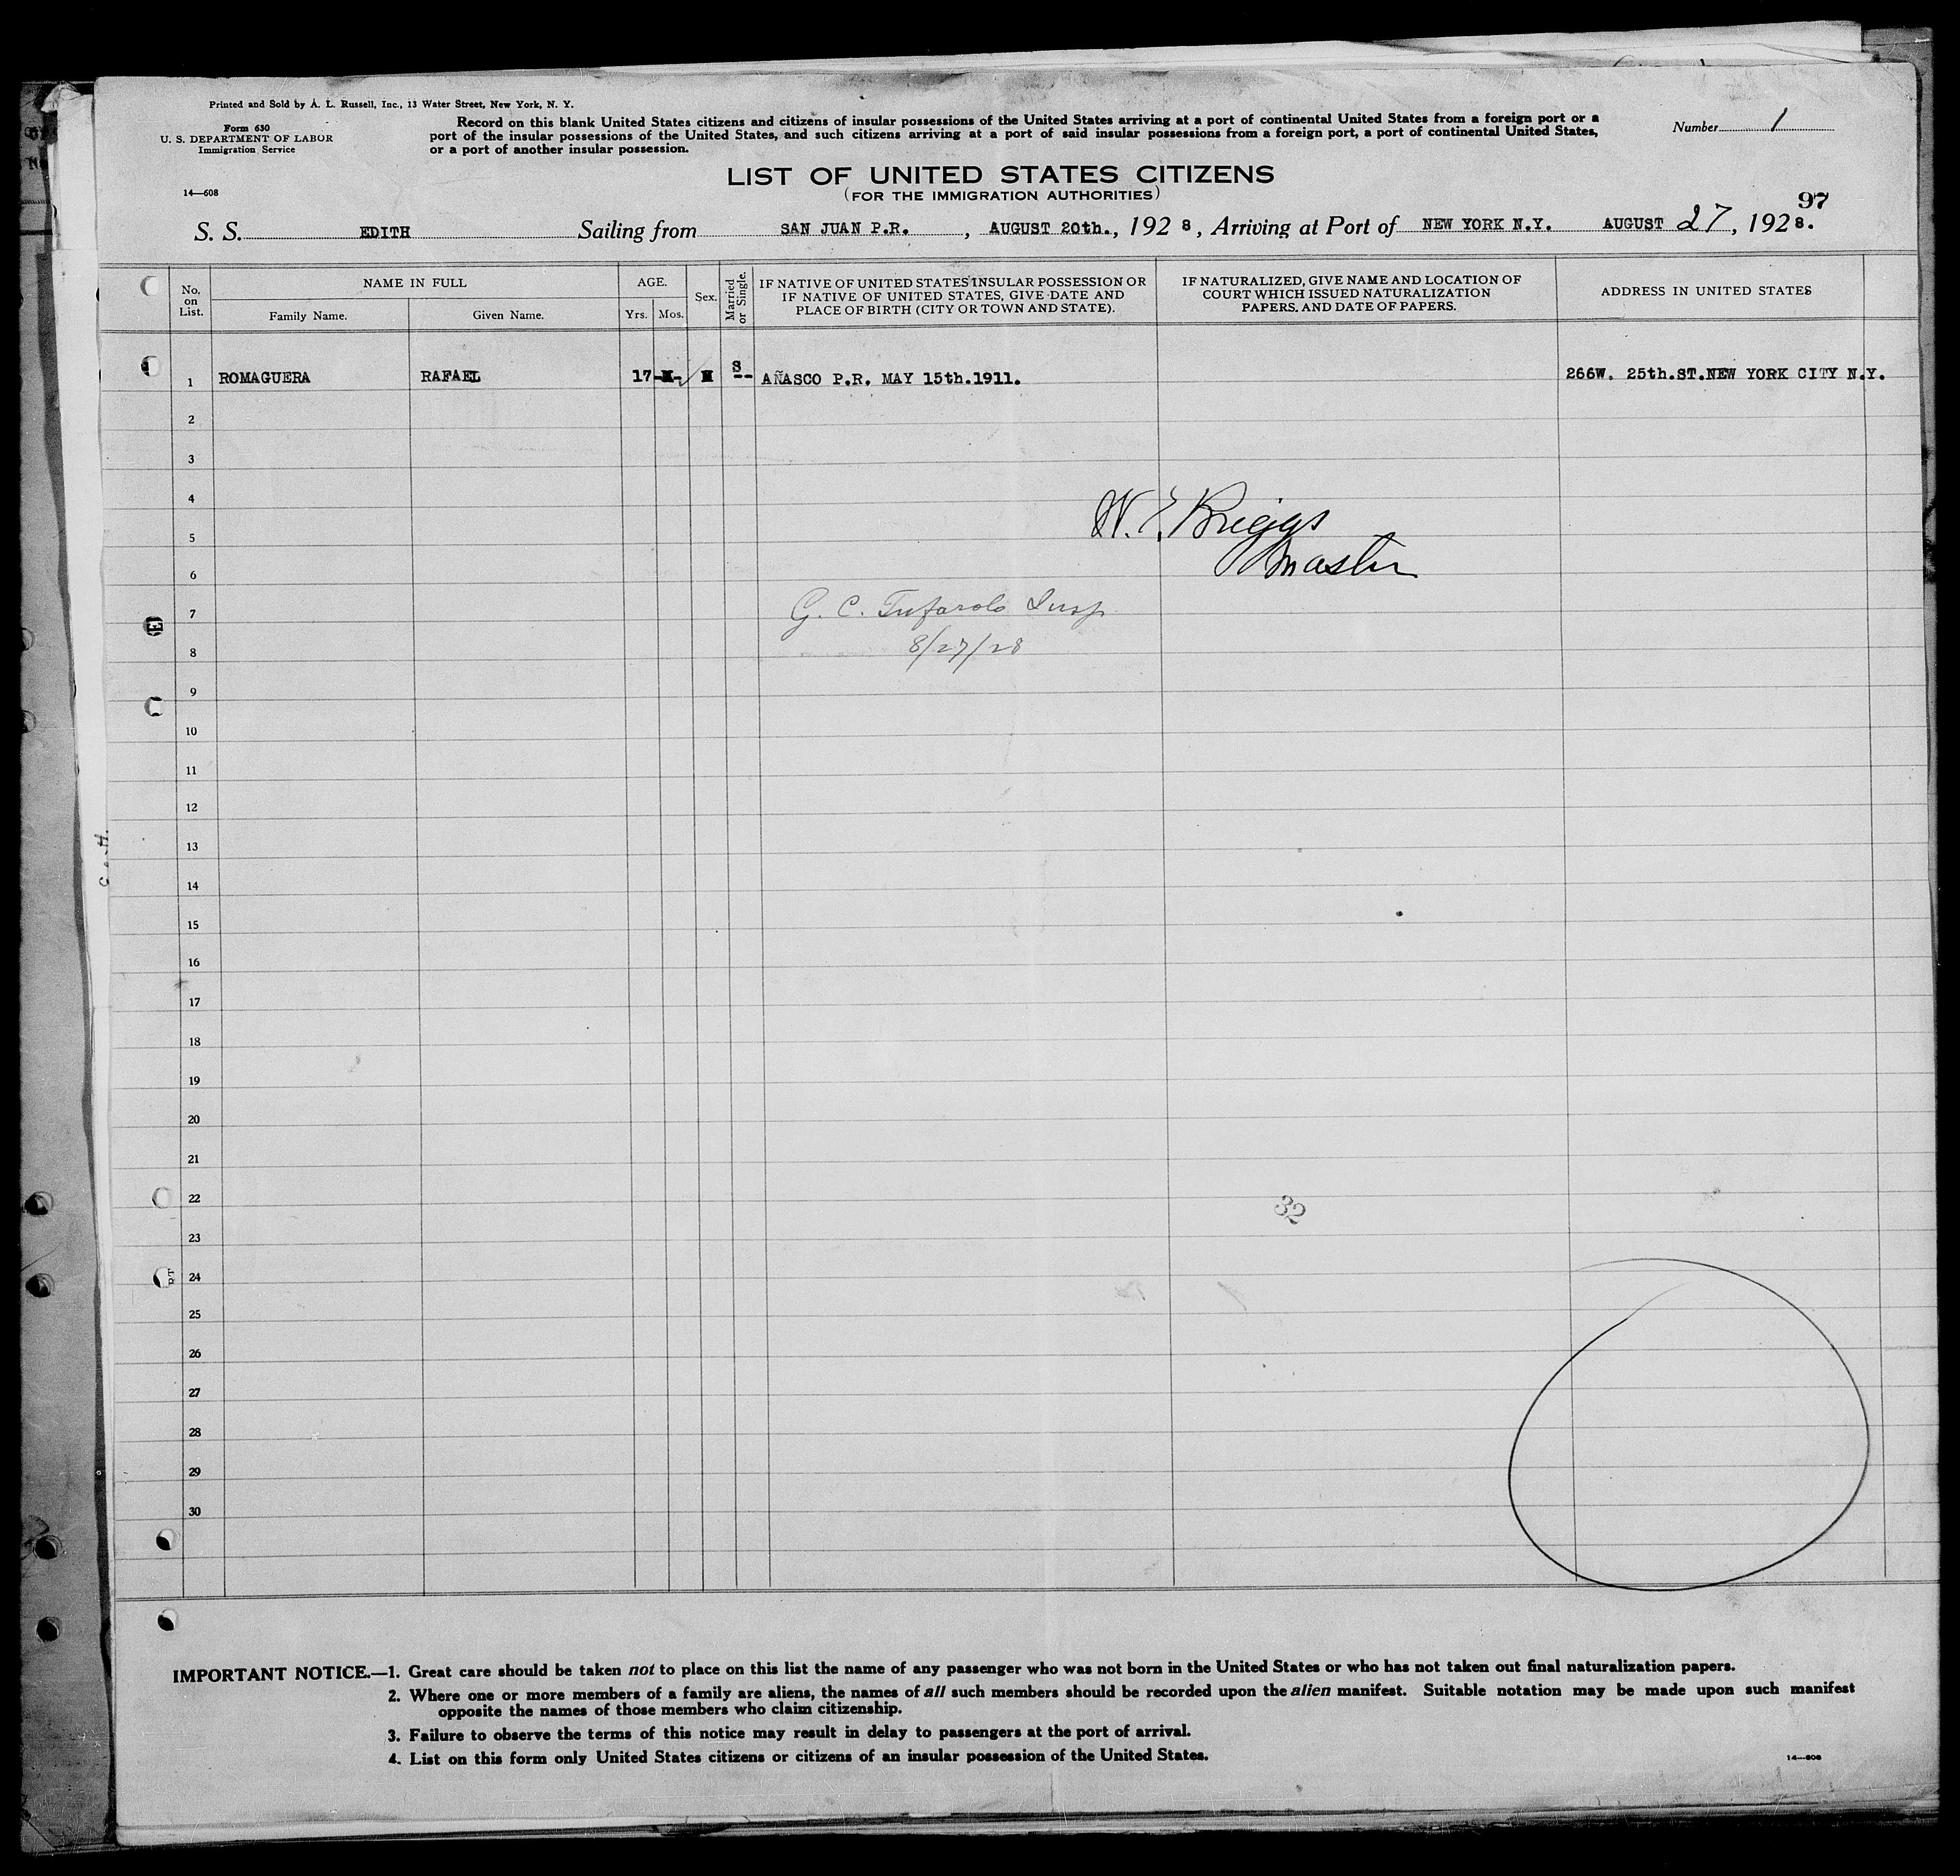 Printed and Sold by A. L. Russell, Inc., 13 Water Street, New York, N. Y.
Form 630
U. S. DEPARTMENT OF LABOR
Immigration Service
14—608
Record on this blank United States citizens and citizens of insular possessions of the United States arriving at a port of continental United States from a foreign port or a
port of the insular possessions of the United States, and such citizens arriving at a port of said insular possessions from a foreign port, a port of continental United States,
or a port of another insular possession.
Number 1
LIST OF UNITED STATES CITIZENS
(FOR THE IMMIGRATION AUTHORITIES)
97
S. S. EDITH Sailing from SAN JUAN P.R. , AUGUST 20th., 1928, Arriving at Port of NEW YORK N.Y. AUGUST 27, 1928.
No. on List.
NAME IN FULL
Family Name.
Given Name.
AGE.
Yrs.
Mos.
Sex.
Married or Single.
IF NATIVE OF UNITED STATES INSULAR POSSESSION OR
IF NATIVE OF UNITED STATES, GIVE DATE AND
PLACE OF BIRTH (CITY OR TOWN AND STATE).
IF NATURALIZED, GIVE NAME AND LOCATION OF
COURT WHICH ISSUED NATURALIZATION
PAPERS, AND DATE OF PAPERS.
ADDRESS IN UNITED STATES
1 ROMAGUERA RAFAEL 17 M S AÑASCO P.R. MAY 15th.1911. 266W. 25th.ST.NEW YORK CITY N.Y.
2
3
4
W. E. Briggs
5
Master
6
7
G. C. Tufarolo Insp
8
8/27/28
9
10
11
12
13
14
15
16
17
18
19
20
21
22
32
23
24
25
26
27
28
29
30
IMPORTANT NOTICE.—1. Great care should be taken not to place on this list the name of any passenger who was not born in the United States or who has not taken out final naturalization papers.
2. Where one or more members of a family are aliens, the names of all such members should be recorded upon the alien manifest. Suitable notation may be made upon such manifest
opposite the names of those members who claim citizenship.
3. Failure to observe the terms of this notice may result in delay to passengers at the port of arrival.
4. List on this form only United States citizens or citizens of an insular possession of the United States.
14—608